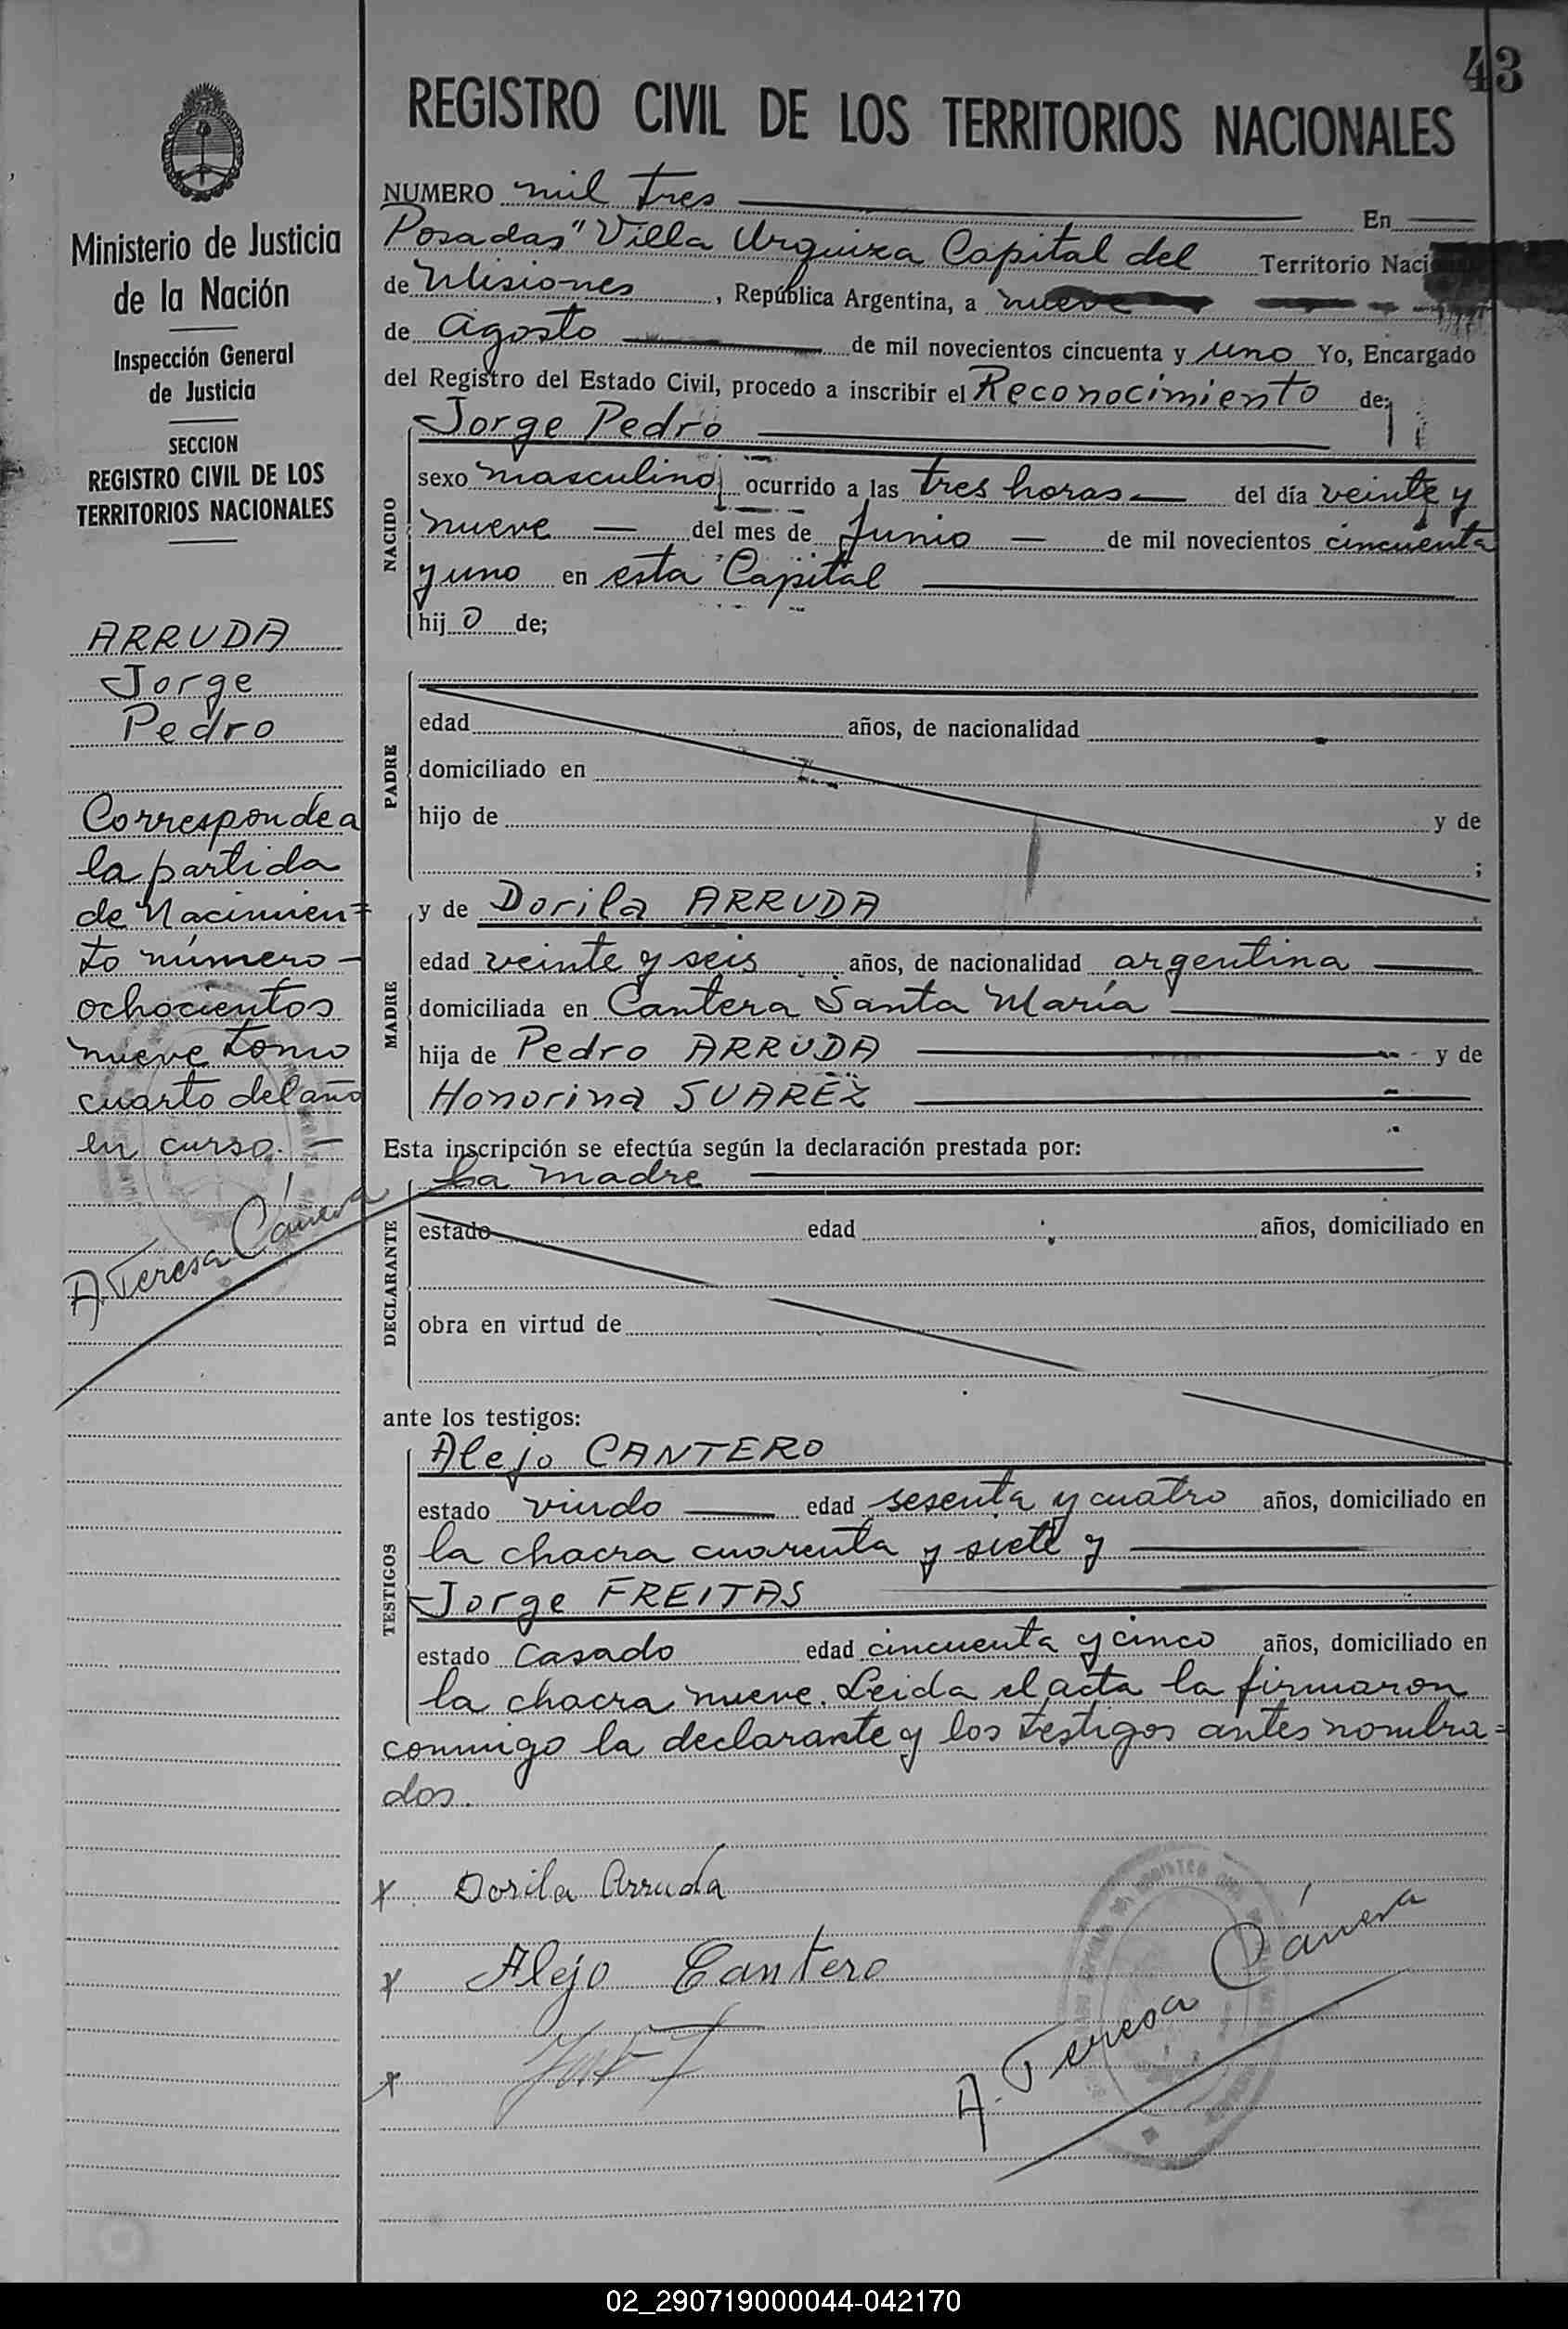 43
REGISTRO CIVIL DE LOS TERRITORIOS NACIONALES
Ministerio de Justicia
de la Nación
Inspección General
de Justicia
SECCION
REGISTRO CIVIL DE LOS
TERRITORIOS NACIONALES
ARRUDA
Jorge
Pedro
Corresponde a
la partida
de Nacimien=
to número -
ochocientos
nueve tomo
cuarto del año
en curso. -
A. Teresa Cáneva
NUMERO mil tres En
Posadas "Villa Urquiza Capital del Territorio Naci
de Misiones, República Argentina, a nueve
de Agosto de mil novecientos cincuenta y uno Yo, Encargado
del Registro del Estado Civil, procedo a inscribir el Reconocimiento de:
NACIDO
Jorge Pedro
sexo masculino ocurrido a las tres horas del día veinte y
nueve del mes de Junio de mil novecientos cincuenta
y uno en esta Capital
hij o de;
PADRE
edad años, de nacionalidad
domiciliado en
hijo de y de
;
MADRE
y de Dorila ARRUDA
edad veinte y seis años, de nacionalidad argentina
domiciliada en Cantera Santa María
hija de Pedro ARRUDA y de
Honorina SUAREZ
Esta inscripción se efectúa según la declaración prestada por:
DECLARANTE
La madre
estado edad años, domiciliado en
obra en virtud de
ante los testigos:
TESTIGOS
Alejo CANTERO
estado viudo edad sesenta y cuatro años, domiciliado en
la chacra cuarenta y siete y
Jorge FREITAS
estado casado edad cincuenta y cinco años, domiciliado en
la chacra nueve. Leida el acta la firmaron
conmigo la declarante y los testigos antes nombra=
dos.
x Dorila Arruda
x Alejo Cantero
x
A. Teresa Cáneva
02_290719000044-042170